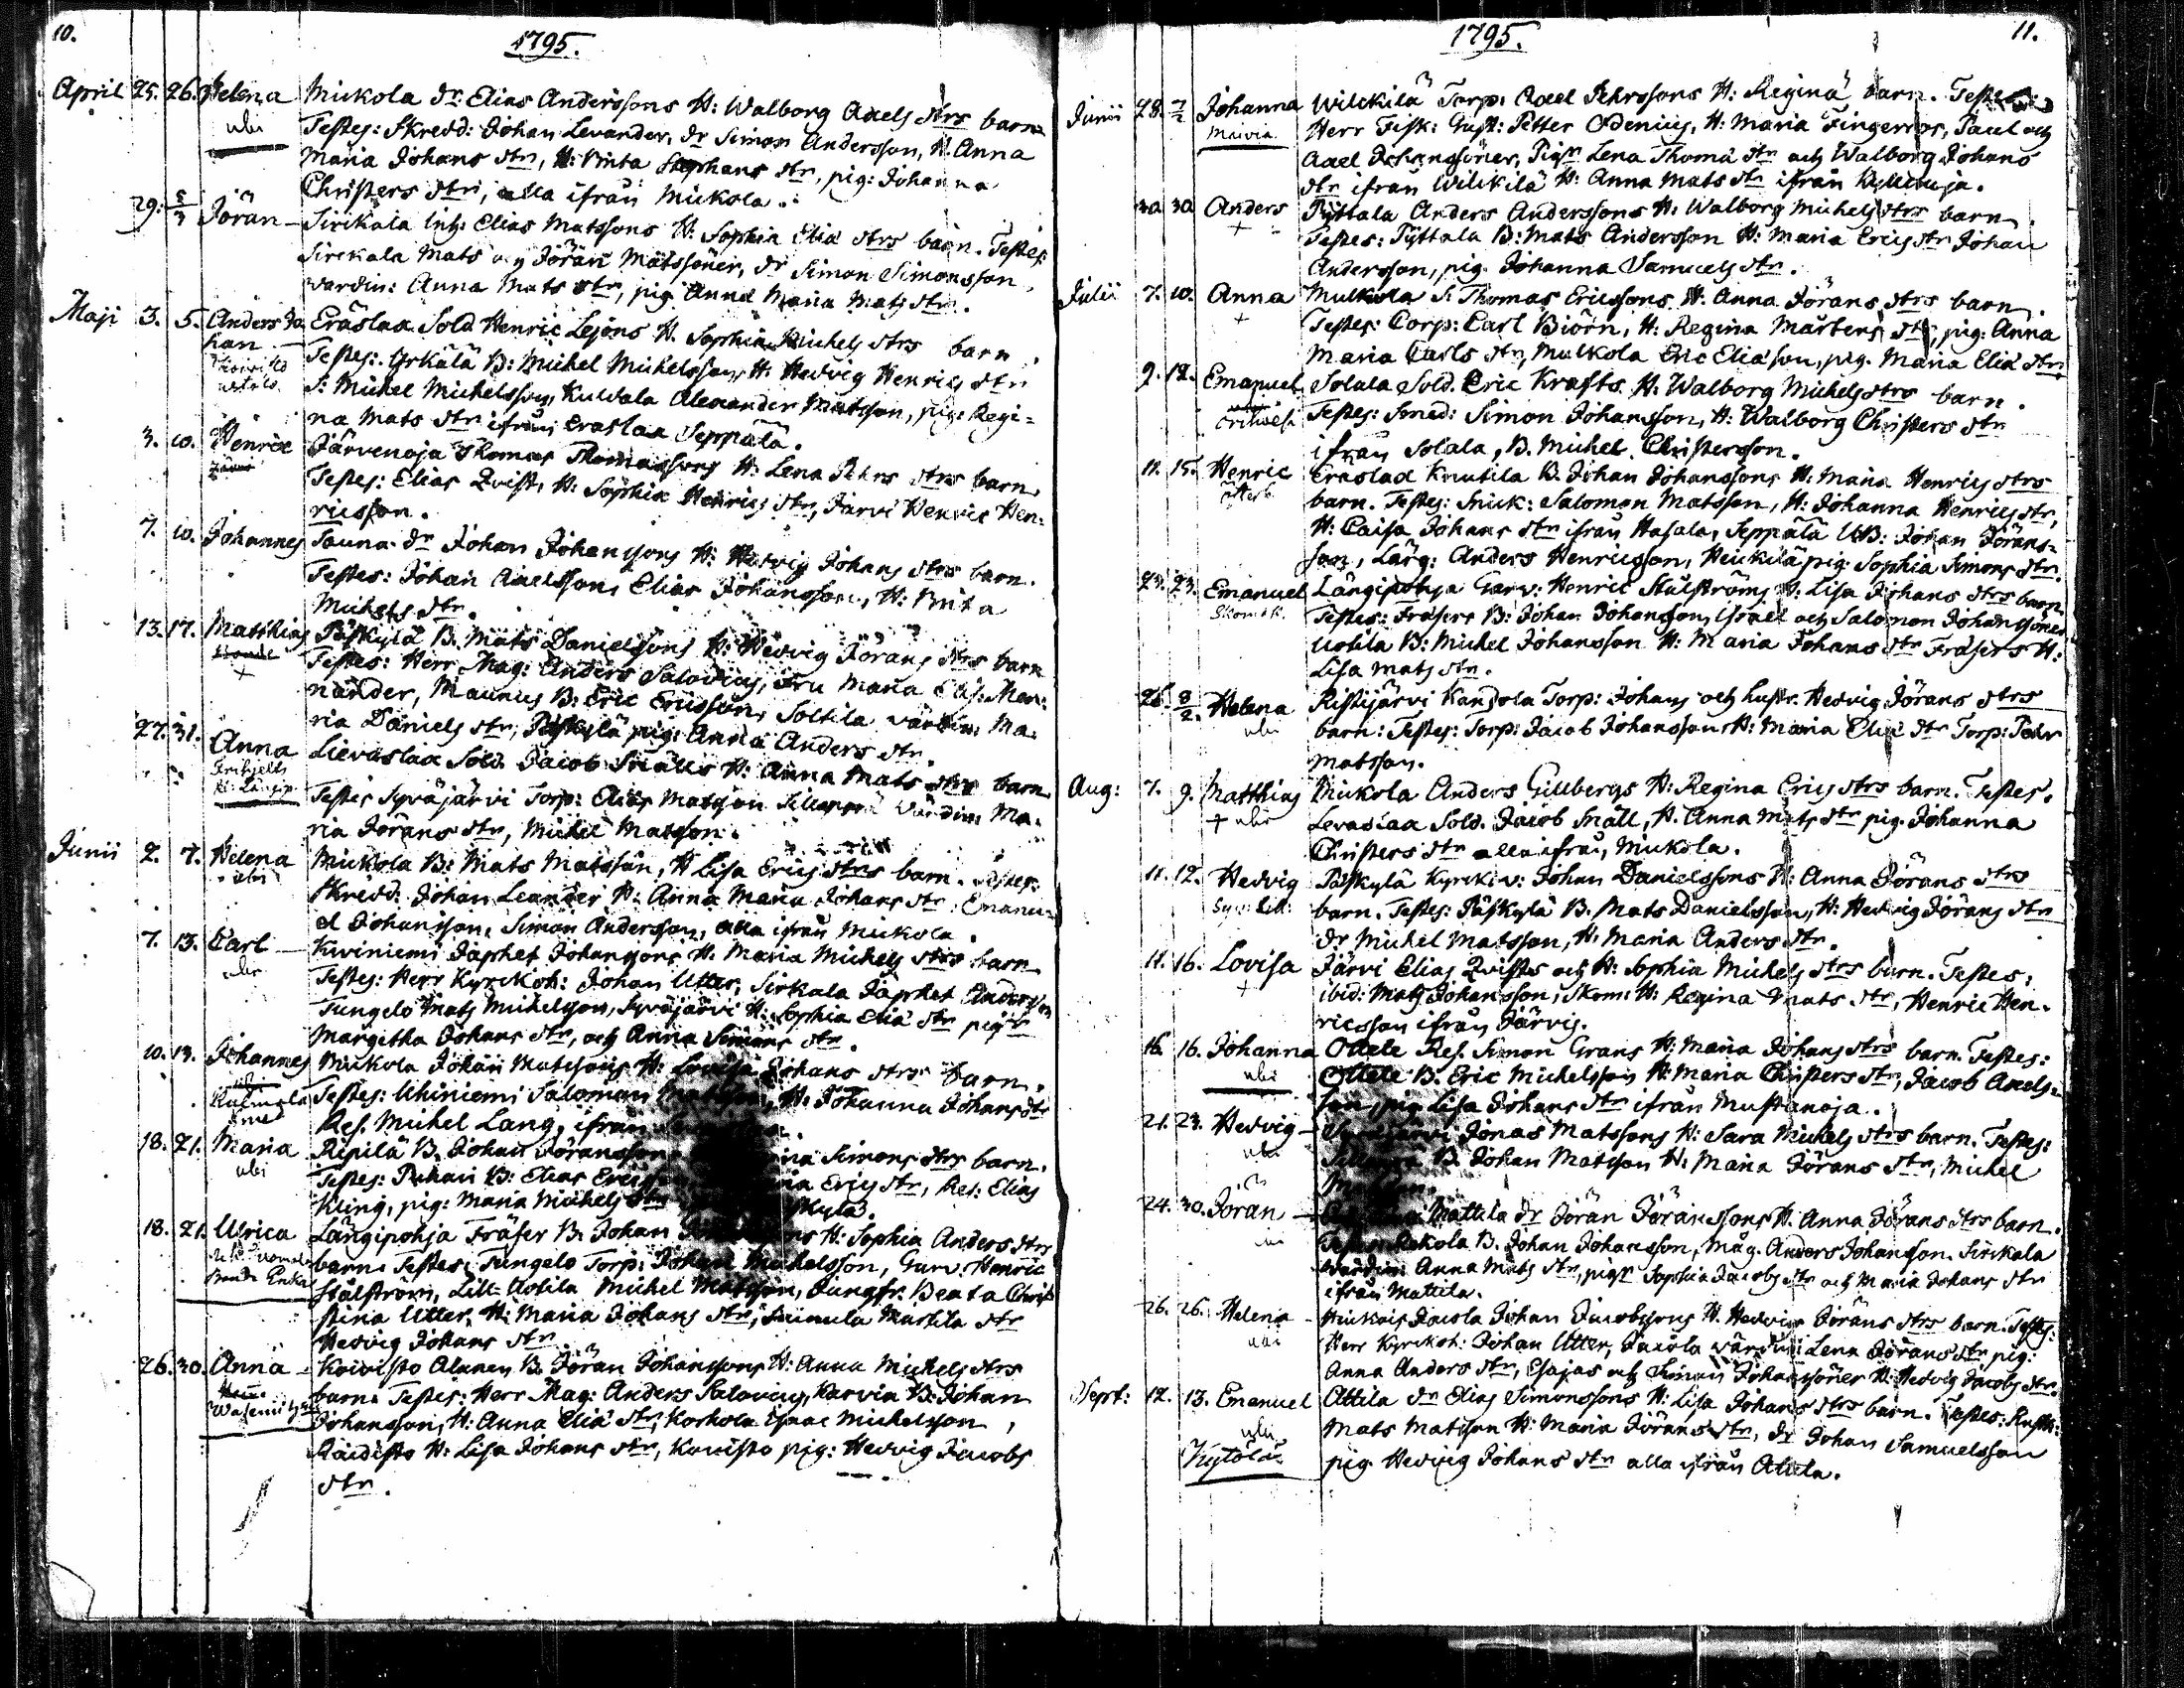 10.
1795.
April 25. 26. Helena Muckola dr: Elias Anderssons H: Walborg Axels dtrs barn
ubi Testes: Skredd: Johan Levander, dr Simon Andersson, H. Anna
Maria Johans dtr, H: Brita Stephans dtr, pig: Johanna
Christers dtr, alla ifrån Muckola.
29. 5/3 Jöran Sirikala Inh: Elias Matssons H: Sophia Eliæ dtrs barn. Testes
Sirckala Mats och Jöran Matssöner, dr Simon Simonsson,
wärdin: Anna Mats dtr, pig Anna Maria Mats dtr.
Maji 3. 5. Anders Jo Eräslax Sold Henric Lejons H. Sophia Michels dtrs barn.
han Testes: Yrkälä B: Michel Michelsson, H: Hedvig Henrics dtr
S: Michel Michelsson, Kuwala Alexander Matsson, pig: Regi=
na Mats dtr ifrån Eräslax Seppälä.
3. 10. Henric Järvenoja Thomas Thomassons H: Lena Pehrs dtrs barn
Testes: Elias Qvist, H: Sophia Henrics dtr, Järvi Henric Hen=
ricsson.
7. 10. Johannes Sauna dr Johan Johanssons H: Hedvig Johans dtrs barn.
Testes: Johan Axelsson, Elias Johansson, H: Brita
Michels dtr.
13. 17. Matthias Päskylä B. Mats Danielssons H: Hedvig Jörans dtrs barn
+ Testes: Herr Mag: Anders Salovius, Fru Maria Elis: Men=
nander, Maunus B: Eric Ericsson, Soltila wärdin: Ma=
ria Daniels dtr, Päskylä pig: Anna Anders dtr.
27. 31. Anna Lievaslax Sold. Jacob Snälls H: Anna Mats dtrs barn
Testes Syväjärvi Torp: Elias Matsson wärdin: Ma=
ria Jörans dtr, Michel Matsson.
Junii 2. 7. Helena Muckola B: Mats Matsson, H Lisa Erics dtrs barn. Testes:
ubi Skredd: Johan Leander H: Anna Maria Johans dtr, Emanu=
el Johansson, Simon Andersson, alla ifrån Muckola.
7. 13. Carl Kiviniemi Japhet Johanssons H. Maria Michels dtrs barn
ubi Testes: Herr Kyrckoh: Johan Utter, Sirkala Japhet Andersson
Tungelo Mats Michelsson, Syväjärvi H: Sophia Eliæ dtr pigr
Margetha Johans dtr, och Anna Simons dtr.
10. 13. Johannes Muckola Johan Matssons H: Lovisa Johans dtrs barn.
Testes: Uhiniemi Salomon H: Johanna Johans dtr
Ref. Michel Lang, ifrån
18. 21. Maria Ripilä B. Johan Jöransson Simons dtrs barn.
ubi Testes: Puhari B: Elias Erics Erics dtr, Ref: Elias
Kling, pig: Maria Michels dtr kylä.
18. 21. Ulrica Långipohja Fräser B. Johan H: Sophia Anders dtrs
barn. Testes: Tungelo Torp: Johan Michelsson, Garv. Henric
Stålström, Lill-Uotila Michel Matsson, Jungfr. Beata Chri
stina Utter, H: Maria Johans dtr, Martila dtr
Hedvig Johans dtr.
26. 30. Anna Koivisto Alanen B. Jöran Johanssons H: Anna Michels dtrs
barn. Testes: Herr Mag: Anders Salovius, Karvia B: Johan
Johansson, H: Anna Eliæ dtr, Korkola Isaac Michelsson,
H: Lisa Johans dtr, Koivisto pig: Hedvig Jacobs
dtr.
1795.
11.
Junii 28. Johanna Wilckilä Torp: Axel Pehrssons H: Reginæ barn. Testes:
Herr Fisk: Gust: Petter Odenius, H: Maria Fingerroos, Paul och
Axel Johanssöner, Pigr Lena Thomæ dtr och Walborg Johans
dtr ifrån Wilckilä H: Anna Mats dtr ifrån
30 30 Anders Pyttala Anders Anderssons H: Walborg Michels dtrs barn.
+ Testes: Pyttala B: Mats Andersson H: Maria Erics dtr Johan
Andersson, pig. Johanna Samuels dtr.
Julii 7. 10. Anna Mulkola S: Thomas Ericssons H: Anna Jörans dtrs barn
+ Testes: Corp: Carl Biörn, H: Regina Mårtens dtr, pig: Anna
Maria Carls dtr, Mulkola Eric Eliasson, pig. Maria Eliæ dtr
9. 12. Emanuel Solala Sold. Eric Krafts H: Walborg Michels dtrs barn.
Testes: Smed: Simon Johansson, H: Walborg Christers dtr
ifrån Solala, B. Michel Christersson.
11. 15. Henric Eräslax Knutila B. Johan Johanssons H: Maria Henrics dtrs
barn. Testes: Snick: Salomon Matsson, H: Johanna Henrics dtr,
H: Caisa Johans dtr ifrån Hasala, Seppälä UB: Johan Jörans=
son, Lärg: Anders Henricsson, Heickilä pig: Sophia Simons dtr.
23. 23. Emanuel Långipohja Garv: Henric Stålströms H: Lisa Johans dtrs barn
Testes: Fräsers B: Johan Johansson, Israel och Salomon Johanssöner
Uotila B: Michel Johansson H: Maria Johans dtr Fräsers H:
Lisa Mats dtr.
26. 8/2. Helena Ristijärvi Kangola Torp: Johans och hustr. Hedvig Jörans dtrs
ubi barn: Testes: Torp: Jacob Johansson H: Maria Eliæ dtr Torp: Pehr
Matsson.
Aug: 7. 9. Matthias Muckola Anders Gillbergs H: Regina Erics dtrs barn. Testes.
+ ubi Levaslax Sold. Jacob Snäll, H. Anna Mats dtr pig. Johanna
Christers dtr alla ifrån, Muckola.
11. 12. Hedvig Päskylä Kyrckiv: Johan Danielssons H: Anna Jörans dtrs
barn. Testes: Päskylä B. Mats Danielsson, H: Hedvig Jörans dtr
dr Michel Matsson, H: Maria Anders dtr.
11. 16. Lovisa Järvi Elias Qvists och H: Sophia Michels dtrs barn. Testes:
+ ibid: Mats Johansson, Skom: H: Regina Mats dtr, Henric Hen=
ricsson ifrån Järvis.
16. 16. Johanna Ottele Ref. Simon Grans H: Maria Johans dtrs barn. Testes:
ubi Ottele B. Eric Michelsson H: Maria Christers dtr, Jacob Axels=
son, pig Lisa Johans dtr ifrån Mustanoja.
21. 23. Hedvig Syväjärvi Jonas Matssons H: Sara Michels dtrs barn. Testes:
ubi B. Johan Matsson H: Maria Jörans dtr, Michel
24. 30. Jöran Mattila dr Jöran Jöranssons H. Anna Jörans dtrs barn.
B. Johan Johansson, Måg. Anders Johansson. Sirckala
wärdin: Anna Mats dtr, pigr Sophia Jacobs dtr och Maria Johans dtr
ifrån Mattila.
26. 26. Helena Jacola Johan Jacobssons H. Hedvig Jörans dtrs barn. Testes:
Herr Kyrckoh: Johan Utter, Jacola wärdin: Lena Jörans dtr pig:
Anna Anders dtr, Esajas och Simon Johanssöner H: Hedvig Jacobs dtr.
Sept: 12. 13. Emanuel Attila dr Elias Simonssons H: Lisa Johans dtrs barn. Testes: Rustk:
ubi Mats Matsson H: Maria Jörans dtr, dr Johan Samuelsson
Kytölä pig Hedvig Johans dtr alla ifrån Attila.